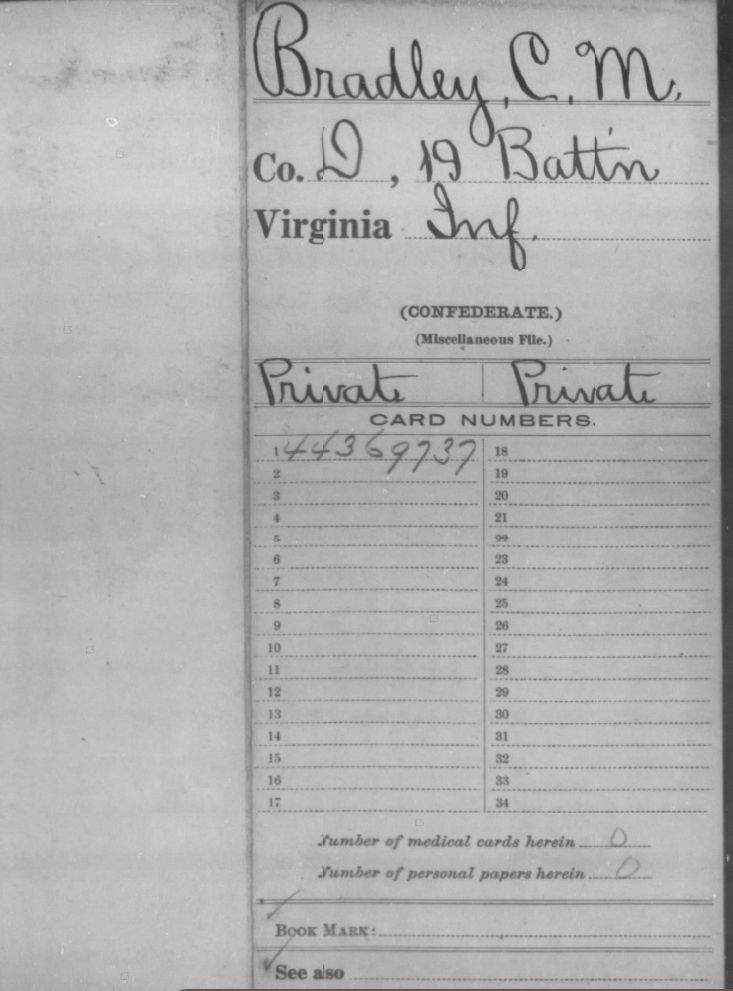 Bradley, C. M.
Co. D, 19 Batt'n
Virginia Inf.
(CONFEDERATE.)
(Miscellaneous File.)
Private | Private
CARD NUMBERS.
1 44369737 18
2 19
3 20
4 21
5 22
6 23
7 24
8 25
9 26
10 27
11 28
12 29
13 30
14 31
15 32
16 33
17 34
Number of medical cards herein 0
Number of personal papers herein 0
BOOK MARK:
See also